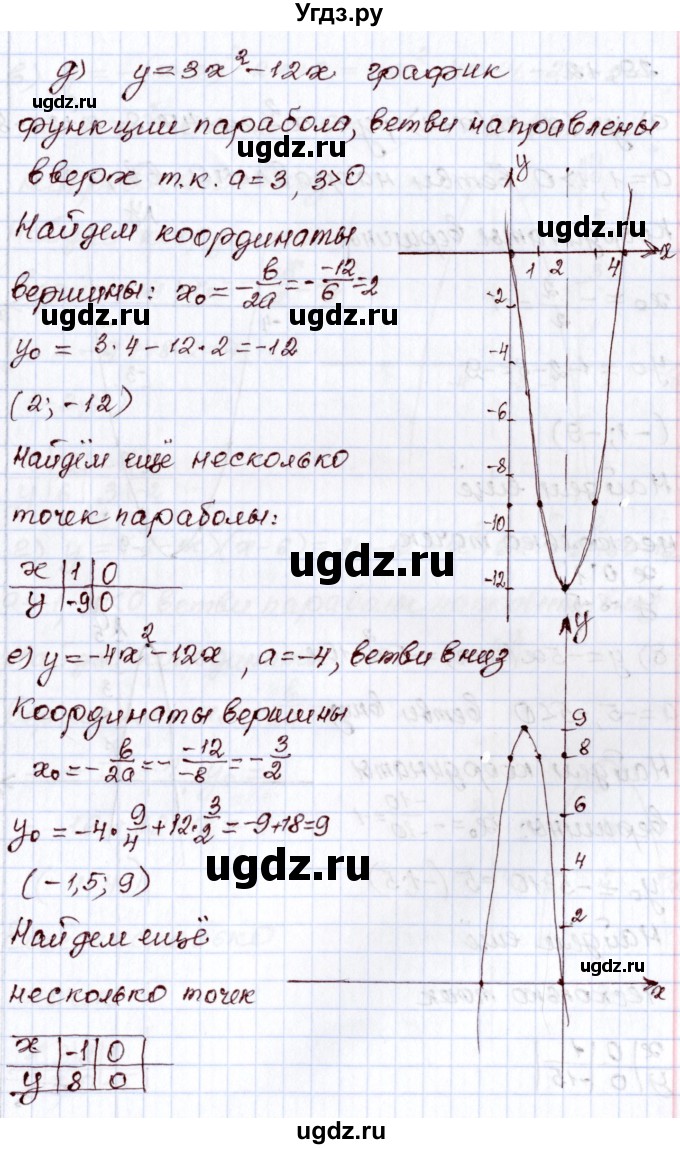 Угдз.ру
д) y=3x²-12x график
функции парабола, ветви направлены
вверх т.к. a=3, 3>0
Найдем координаты
вершины: x₀=-b/2a=--12/6=2
y₀ = 3·4-12·2=-12
(2; -12)
Найдём ещё несколько
точек параболы:
x | 1 | 0
y | -9 | 0
y
x
1 2 4
-2
-4
-6
-8
-10
-12
е) y=-4x²-12x, a=-4, ветви вниз
Координаты вершины
x₀=-b/2a=--12/-8=-3/2
y₀=-4·9/4+12·3/2=-9+18=9
(-1,5; 9)
Найдем ещё
несколько точек
x | -1 | 0
y | 8 | 0
y
9
8
6
4
2
x
ugdz.ru
ugdz.ru
ugdz.ru
ugdz.ru
ugdz.ru
ugdz.ru
ugdz.ru
ugdz.ru
ugdz.ru
ugdz.ru
ugdz.ru
ugdz.ru